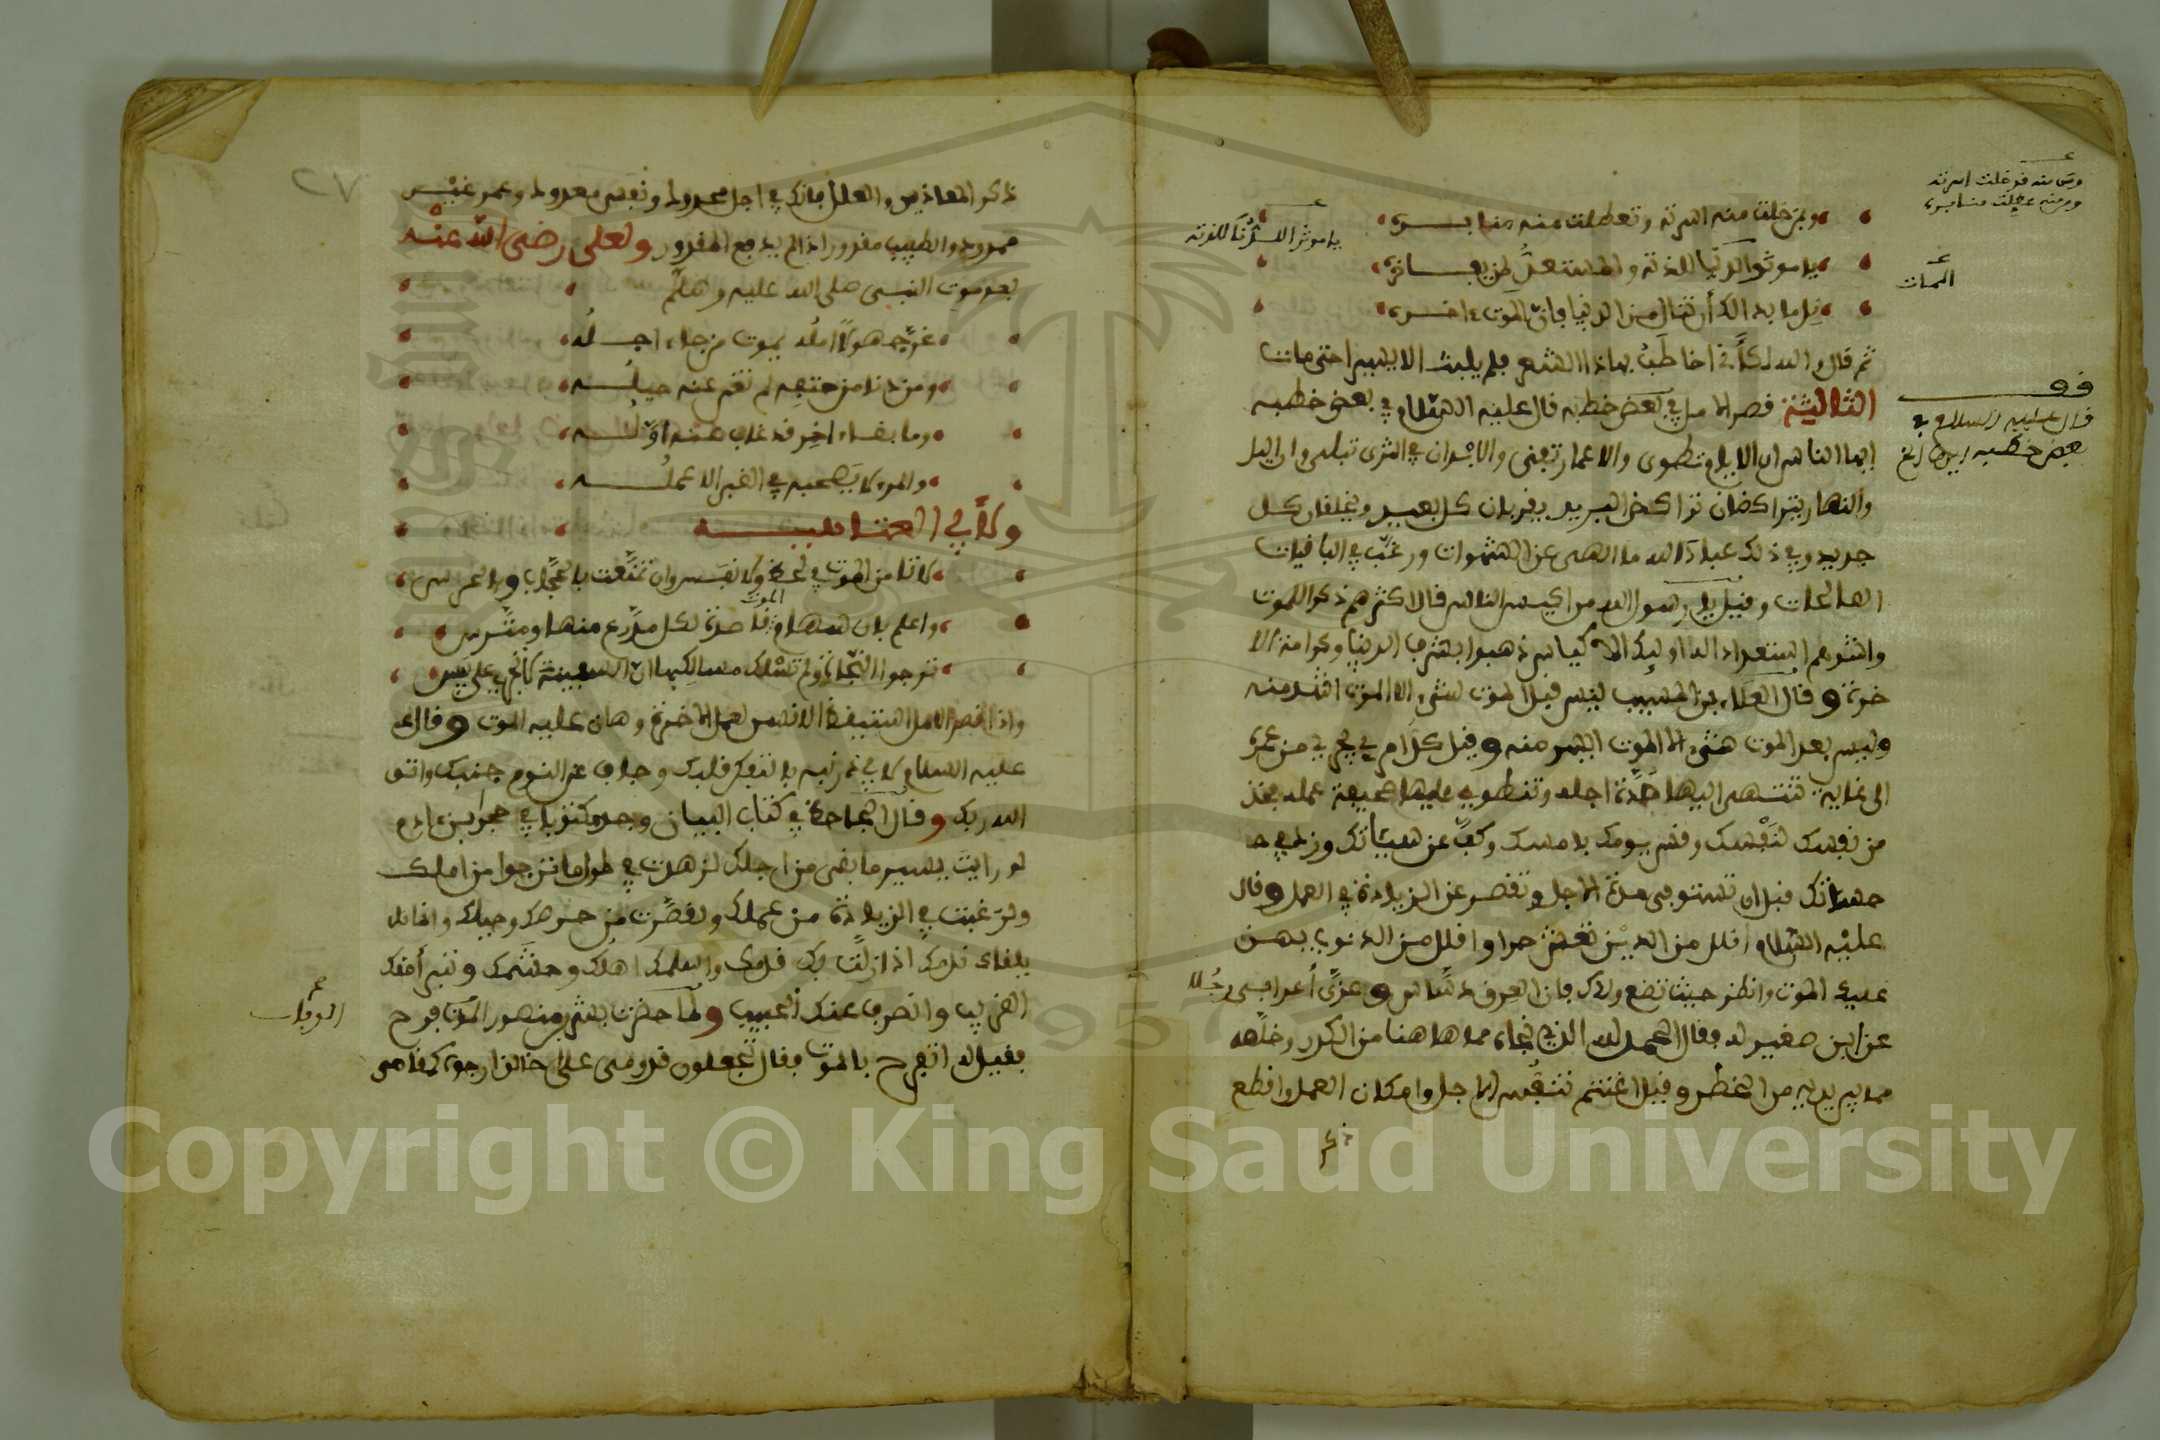 وبمن خلت منه اسرته وتعطلت منه منابره
يا موثر الدنيا للذته والمستعد لمن يفاخره
نل ما بدا لك أن تنال من الدنيا فان الموت ءاخره
ثم قال والله لكأني اخاطب بهاذا الشعر فلم يلبث الا يسيرا حتى مات
الثالثة قصر الامل في بعض خطبه قال عليه السلام في بعض خطبه
ايها الناس ان الايام تطوى والاعمار تفنى والابدان في الثرى تبلى وان اليل
والنهار يتراكضان تراكض البريد يقربان كل بعيد ويخلقان كل
جديد وفي ذلك عباد الله ما الهى عن الشهوات ورغب في الباقيات
الصالحات وقيل يا رسول الله من اكيس الناس قال اكثرهم ذكرا للموت
واشدهم استعدادا له اوليك الاكياس ذهبوا بشرف الدنيا وكرامة الا
خرة وقال العلاء بن المسيب ليس قبل الموت شيء الا الموت اشد منه
وليس بعد الموت شيء الا الموت ايسر منه وقيل كل امرء يجري من عمره
الى غاية تنتهي اليها مدة اجله وتنطوي عليها صحيفة عمله فخذ
من نفسك لنفسك وقس يومك بامسك وكف عن سيئاتك وزد في حـ
حسناتك قبل ان تستوفي مدة الاجل وتقصر عن الزيادة في العمل وقال
عليه السلام اقلل من الدين تعش حرا واقلل من الذنوب يهن
عليك الموت وانظر حيث تضع ولدك فان العرق دساس وعزى أعرابي رجلا
عن ابن صغير له فقال الحمد لله الذي نجاه مما هاهنا من الكدر وخلصه
مما بين يديه من الخطر وقيل اغتنم تنفس الاجل وامكان العمل واقطع
ذكر
ومن خلت منه اسرته
يا موثر الدنيا للذته
الممات
قال عليه السلام في
بعض خطبه ايها الخ
٢٧
ذكر المعاذير والعلل فانك في اجل محدود ونفس معدود وعمر غير
ممدود والطبيب معذور اذا لم يدفع المقدور ولعلى رضى الله عنه
بعد موت النبى صلى الله عليه وسلم
غر جهولا امله يموت من جاء اجله
ومن دنا من حتفه لم تغن عنه حيله
وما بقاء اخر قد غاب عنه اوله
والمرء لا يصحبه في القبر الا عمله
ولأبي العتاهية
لا تامن الموت في لحظ ولا نفس وان تمنعت بالحجاب والحرس
واعلم بان سهام الموت قاصدة لكل مدرع منها ومترس
ترجوا النجاة ولم تسلك مسالكها ان السفينة لا تجري على يبس
واذا قصر الامل استيقظ الانسان لعمل الاخرة وهان عليه الموت وقال
عليه السلام لابي ذر نبه بالتفكر قلبك وجاف عن النوم جنبك واتق
الله ربك وقال الجاحظ في كتاب البيان وجد مكتوبا في حجر ابن ادم
لو رايت يسير ما بقى من اجلك لزهدت في طول ما ترجوا من املك
ولرغبت في الزيادة من عملك ولقصرت من حرصك وحيلك وانما
يلقاك ندمك اذا زلت بك قدمك واسلمك اهلك وحشمك وتبرأ منك
القريب وانصرف عنك الحبيب ولما حضرت بشر بن منصور الموت فرح
فقيل له اتفرح بالموت فقال تجعلون قدومى على خالق ارجوه كمقامى
الوفاة